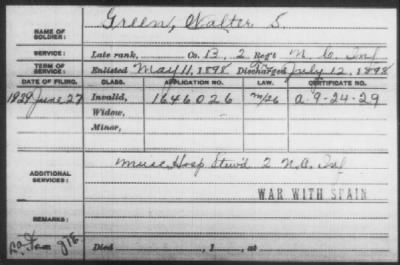 NAME OF SOLDIER: Green, Walter S.
SERVICE: Late rank, Co. B, 2 Reg't N. C. Inf
TERM OF SERVICE: Enlisted May 11, 1898 Discharged July 12, 1898
DATE OF FILING. CLASS. APPLICATION NO. LAW. CERTIFICATE NO.
1929 June 27 Invalid, 1646026 a 9-24-29
Widow,
Minor,
ADDITIONAL SERVICES: Hosp. Stew'd 2 N.C. Inf
WAR WITH SPAIN
REMARKS:
Died , 1 , at